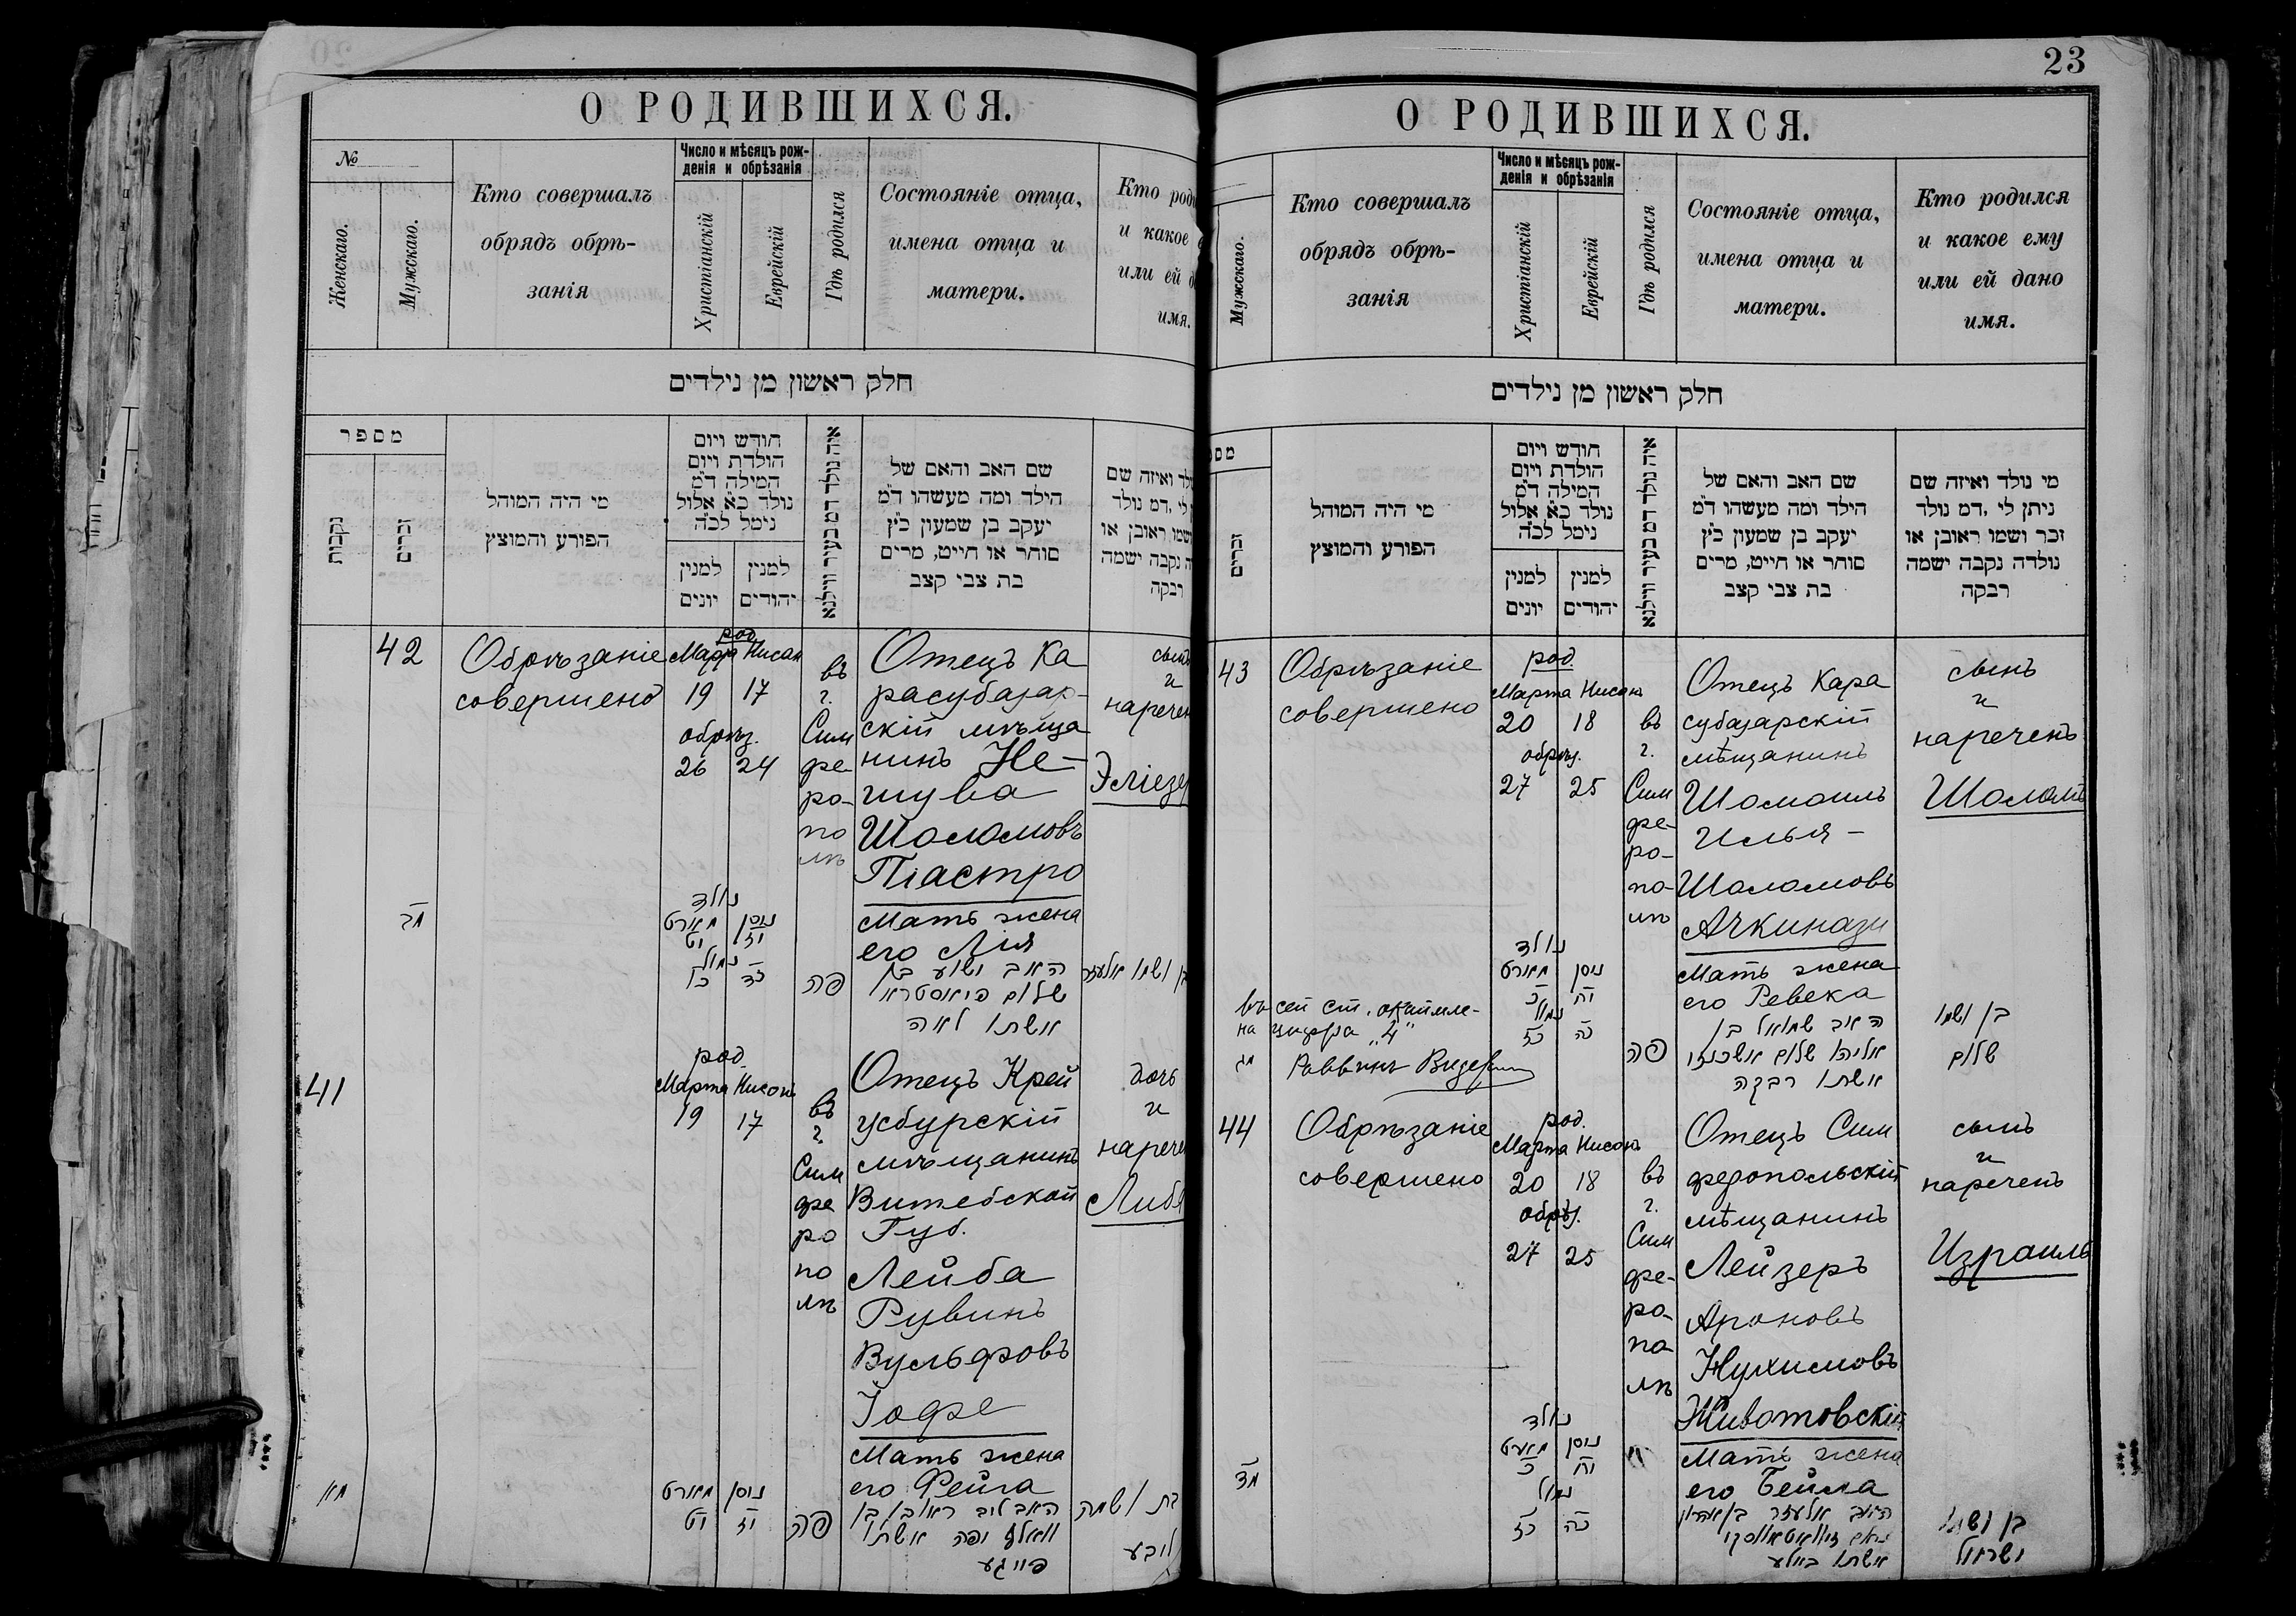 О РОДИВШИХСЯ.
№
Женскаго.
Мужскаго.
Кто совершалъ
обрядъ обрѣ-
занія
Число и мѣсяцъ рож-
денія и обрѣзанія
Христіанскій
Еврейскій
Гдѣ родился
Состояніе отца,
имена отца и
матери.
Кто
и какое
или ей
имя.
חלק ראשון מן נילדים
מספר
נקבות
זכרים
מי היה המוהל
הפורע והמוצץ
חודש ויום
הולדת ויום
המילה ד"מ
נולד כ"א אלול
נימל לכ"ה
למנין
יונים
למנין
יהודים
איה נולד דמ בעיר ווילנא
שם האב והאם של
הילד ומה מעשהו ד"מ
יעקב בן שמעון כ"ץ
סוחר או חייט, מרים
בת צבי קצב
ואיזה שם
לי, דמ נולד
ושמו ראובן או
נקבה ישמה
רבקה
42
Обрѣзаніе
совершено
род.
Марта Нисан
19 17
обрѣз.
26 24
въ
г.
Сим
фе-
ро-
по
лѣ
Отецъ Ка
расубазар-
скій мѣща
нинъ Не-
шува
Шоломовъ
Піастро
Мать жена
его Лія
сынъ
и
наречен
Эліезе
מב
נולד
מארט ניסן
יט יז
נמול
כו כד
פה
האב ישוע בן
שלום פיאסטרא
אשתו לאה
בן ושמו אלעזר
41
род.
Марта Нисонъ
19 17
въ
г.
Сим
фе
ро
по
лѣ
Отецъ Крей
усбурскій
мѣщанинъ
Витебской
Губ.
Лейба
Рувинъ
Вульфовъ
Іофе
Мать жена
его Фейга
дочь
и
нарече
Либа
מא
מארט ניסן
יט יז
פה
האב ליב ראובן בן
וואלף יפה אשתו
פייגע
בת ושמה
ליבע
23
О РОДИВШИХСЯ.
Мужскаго.
Кто совершалъ
обрядъ обрѣ-
занія
Число и мѣсяцъ рож-
денія и обрѣзанія
Христіанскій
Еврейскій
Гдѣ родился
Состояніе отца,
имена отца и
матери.
Кто родился
и какое ему
или ей дано
имя.
חלק ראשון מן נילדים
זכרים
מי היה המוהל
הפורע והמוצץ
חודש ויום
הולדת ויום
המילה ד"מ
נולד כ"א אלול
נימל לכ"ה
למנין
יונים
למנין
יהודים
איה נולד דמ בעיר ווילנא
שם האב והאם של
הילד ומה מעשהו ד"מ
יעקב בן שמעון כ"ץ
סוחר או חייט, מרים
בת צבי קצב
מי נולד ואיזה שם
ניתן לי, דמ נולד
זכר ושמו ראובן או
נולדה נקבה ישמה
רבקה
43
Обрѣзаніе
совершено
род.
Марта Нисонъ
20 18
обрѣз.
27 25
въ
г.
Сим
фе-
ро-
по-
лѣ
Отецъ Кара
субазарскій
мѣщанинъ
Шомоилъ
Илья-
Шоломовъ
Ачкинази
Мать жена
его Ревека
сынъ
и
нареченъ
Шоломъ
въ сей ст.
на цифра „4“
Раввинъ
מג
נולד
מארט ניסן
כ יח
נמול
כז כה
פה
האב שמואל בן
אליהו שלום אשכנזי
אשתו רבקה
בן ושמו
שלום
44
Обрѣзаніе
совершено
род.
Марта Нисонъ
20 18
обрѣз.
27 25
въ
г.
Сим
фе-
ро-
по
лѣ
Отецъ Сим
феропольскій
мѣщанинъ
Лейзеръ
Ароновъ
Нухимовъ
Животовскій
Мать жена
его Бейла
сынъ
и
нареченъ
Израиль
מד
נולד
מארט ניסן
כ יח
נמול
כז כה
האב אלעזר בן אהרון
אשתו ביילע
בן ושמו
ישראל